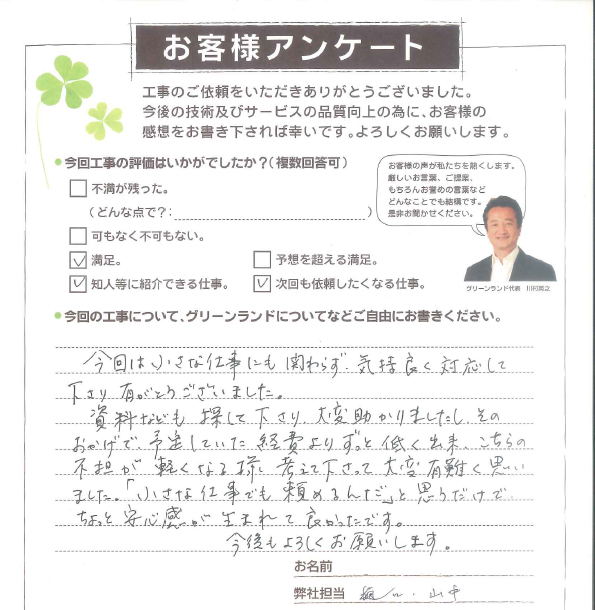 お客様アンケート
工事のご依頼をいただきありがとうございました。
今後の技術及びサービスの品質向上の為に、お客様の
感想をお書き下されば幸いです。よろしくお願いします。
今回工事の評価はいかがでしたか？(複数回答可)
不満が残った。
(どんな点で？: )
可もなく不可もない。
満足。 予想を超える満足。
知人等に紹介できる仕事。 次回も依頼したくなる仕事。
お客様の声が私たちを熱くします。
厳しいお言葉、ご提案、
もちろんお誉めの言葉など
どんなことでも結構です。
是非お聞かせください。
グリーンランド代表
今回の工事について、グリーンランドについてなどご自由にお書きください。
今回は小さな仕事にも関わらず、気持良く対応して
下さり有がとうございました。
資料なども探して下さり、大変助かりましたし、その
おかげで、予定していた経費よりずっと低く出来、こちらの
不担が軽くなる様に考えて下さって大変有難く思い
ました。「小さな仕事でも頼めるんだ」と思うだけで
ちょっと安心感が生まれて良かったです。
今後もよろしくお願いします。
お名前
弊社担当 ・山中